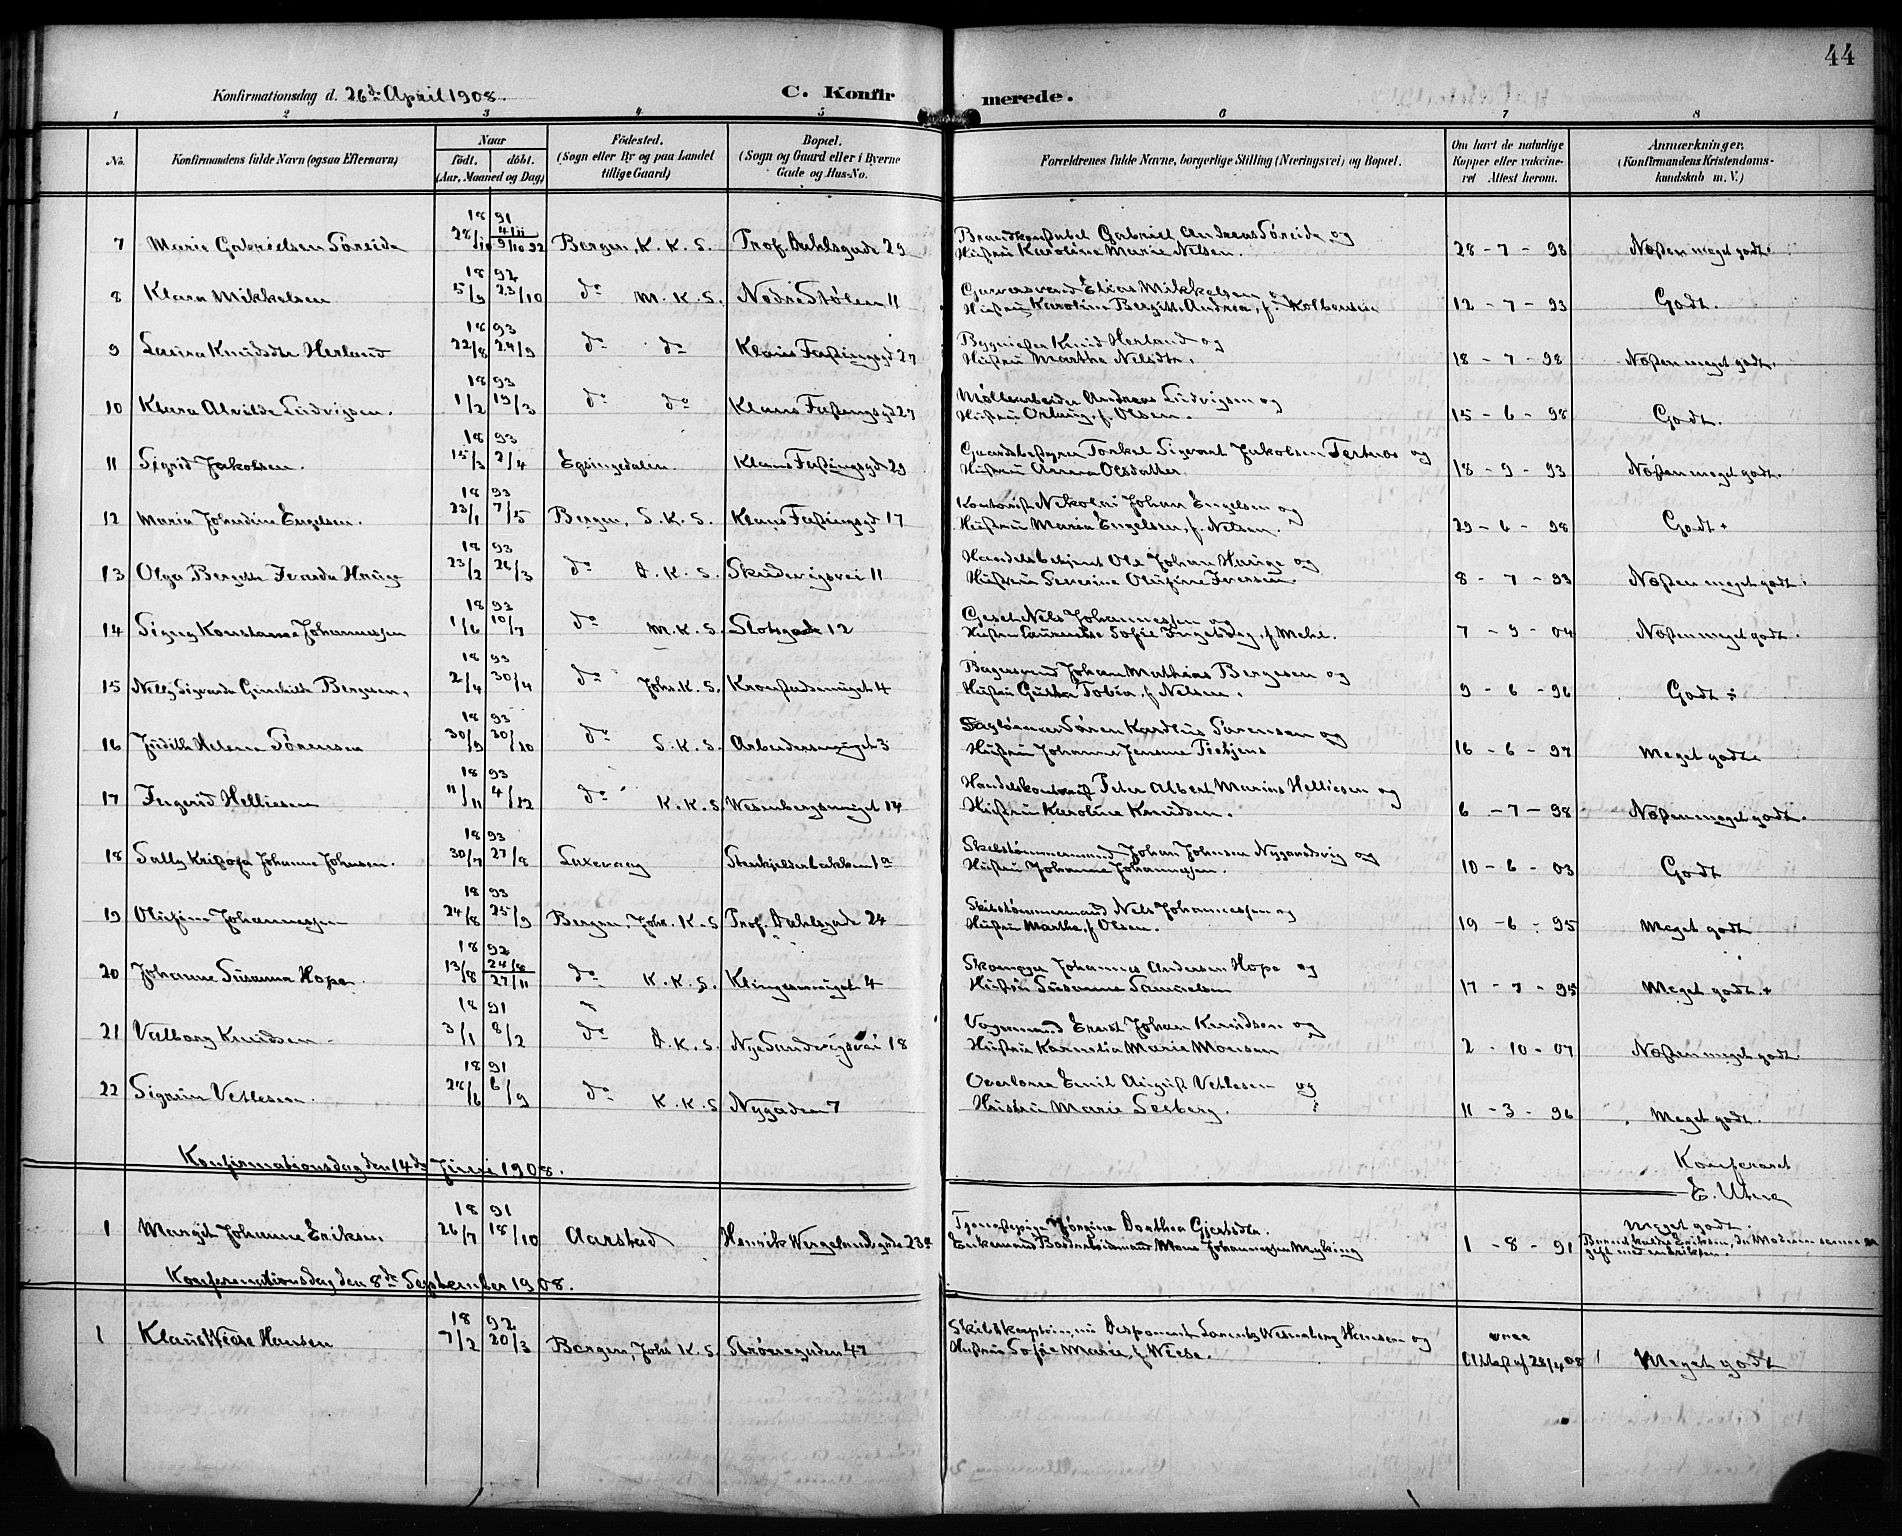 44
Konfirmationsdag d. 26de April 1908.
C. Konfirmerede.
1 2 3 4 5 6 7 8
No.
Konfirmandens fulde Navn (ogsaa Efternavn)
Naar
født. døbt.
(Aar, Maaned og Dag)
Fødested.
(Sogn eller By og paa Landet
tillige Gaard)
Bopæl.
(Sogn og Gaard eller i Byerne
Gade og Hus-No.
Forældrenes fulde Navne, borgerlige Stilling (Næringsvei) og Bopæl.
Om havt de naturlige
Kopper eller vakcine-
ret Attest herom.
Anmærkninger,
(Konfirmandens Kristendoms-
kundskab m. V.)
18 91
7 Marie Gabrielsen Søreide 28/10 4/11 9/10 92 Bergen, K. K. S. Prof. Dahlsgade 29 Brandkonstabel Gabriel Andreas Søreide og
Hustru Karoline Marie Nelsen. 28 - 7 - 93 Næsten meget godt.
18 92
8 Klara Mikkelsen 5/9 23/10 do M. K. S. Nedre Stølen 11 Garversvend Elias Mikkelsen og
Hustru Karoline Bergitte Andrea, f. Kolbensen 12 - 7 - 93 Godt.
18 93
9 Laura Knudsdtr Herland 22/8 24/9 do do Klaus Fastingsgd 27 Bygmester Knud Herland og
Hustru Martha Nelsdtr. 18 - 7 - 98 Næsten meget godt.
18 93
10 Klara Alvilde Ludvigsen. 1/2 19/3 do do Klaus Fastingsgd 27 Møllearbeider Andreas Ludvigsen og
Hustru Oslaug, f. Olsen. 15 - 6 - 98 Godt.
18 93
11 Sigrid Jakobsen. 15/3 2/4 Eqsingedalen. Klaus Fastingsgd 29 Gaardsbestyrer Torkel Sigvart Jakobsen Tertnes og
Hustru Anna Olsdatter. 18 - 9 - 93 Næsten meget godt.
18 93
12 Maria Johndine Engelsen. 23/1 7/5 Bergen, S. K. S. Klaus Fastingsgd 17 Kontorist Nekolai Johan Engelsen og
Hustru Maria Engelsen, f. Nelsen. 29 - 6 - 98 Godt +
18 93
13 Olga Bergitte Ivarda Hauge 23/2 26/3 do D. K. S. Skudevigsvei 11 Handelsbetjent Ole Johan Hauge og
Hustru Severine Olufine Iversen. 8 - 7 - 93 Næsten meget godt.
18 93
14 Signy Konstanse Johannessen 1/6 10/7 do M. K. S. Slotsgade 12 Gesel Nels Johannessen og
Hustru Laurentse Sofie Ingeborg, f. Mehl. 7 - 9 - 04 Næsten meget godt.
18 93
15 Nelly Sigvarda Gunhilda Bergesen, 2/4 30/4 do Johs. K. S. Kronstadsmuget 4 Bagersvend Johan Mathias Bergesen og
Hustru Gusta Tobia, f. Nelsen. 9 - 6 - 96 Godt ÷
18 93
16 Judith Helene Sørensen 30/9 30/10 do S. K. S. Arbeidersmuget 3 Dagløenner Søren Kardtius Sørensen og
Hustru Johanne Jensine Tietjens 16 - 6 - 97 Meget godt.
18 93
17 Ingerid Helliesen 11/11 4/12 do K. K. S. Wesenbergsmuget 14 Handelskontorist Peter Albert Marius Helliesen og
Hustru Karoline Knudsen. 6 - 7 - 98 Næsten meget godt.
18 93
18 Sally Kristofa Johanne Johnsen. 30/7 27/8 Laxevaag Storkjelderbakken 1a Skibstømmermand Johan Johnsen Nygaardsvig og
Hustru Johanne Johannessen. 10 - 6 - 03 Godt
18 93
19 Olufine Johannessen 24/8 25/9 Bergen, Johs. K. S Prof. Dahlsgade 24 Skibstømmermand Nels Johannessen og
Hustru Martha, f. Olsen. 19 - 6 - 95 Meget godt
18 92
20 Johanne Susanna Hope. 13/8 24/8 27/11 do K. K. S. Klingesmuget 4 Skomager Johannes Andersen Hope og
Hustru Susanne Samuelsen 17 - 7 - 95 Meget godt. +
18 91
21 Valborg Knudsen 3/1 8/2 do D. K. S. Nye Sandvigsvei 18 Vognmand Ernst Johan Knudsen og
Hustru Kornelia Marie Monsen 2 - 10 - 07 Næsten meget godt.
18 91
22 Sigrun Vetlesen. 28/6 6/9 do K. K. S Nygaden 7 Overlærer Emil August Vetlesen og
Hustru Marie Seeberg. 11 - 3 - 96 Meget godt.
Konfirmationsdag den 14de Juni 1908.
Konfereret
E. Utne
18 91
1 Margit Johanne Eriksen. 26/7 18/10 Aarstad Henrik Wergelandsgade 23a Tjenestepige Jørgine Dorthea Gjertsdtr.
Enkemand Mons Johannessen Myking 1 - 8 - 91 Meget godt.
Konfirmationsdag den 8de September 1908.
18 92
1 Klaus Wiese Hansen 7/2 20/3 Bergen, Johs K. S. Strøm gaden 47 Skibskaptein, nu Desponent Lorentz Wesenberg Hansen og
Hustru Sofie Marie, f. Wiese. Attest af 28/4 08 Meget godt